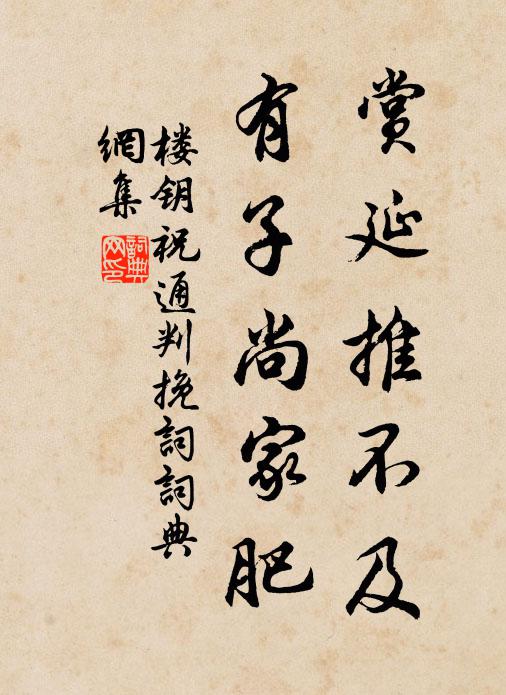 賞延推不及
有子尚家肥
楼钥祝通判挽詞詞典
網集
詞典网印